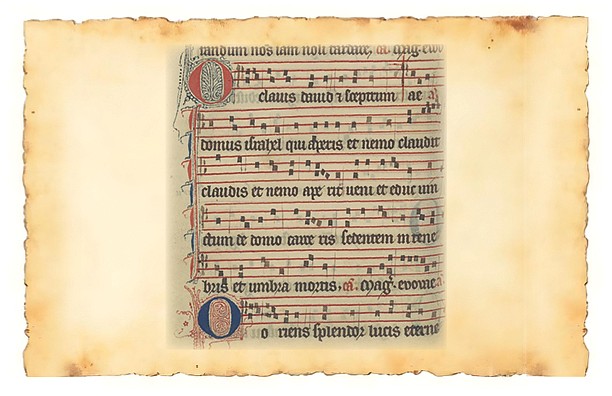 randum nos iam noli tardare, ca. Mag. evo
O clauis dauid ⁊ sceptrum ae
domus israhel qui aperis et nemo claudit
claudis et nemo ape rit ueni et educ uin
ctum de domo carce ris sedentem in tene
bris et umbra mortis, ca. Mag. evovae
O o riens splendor lucis eterne